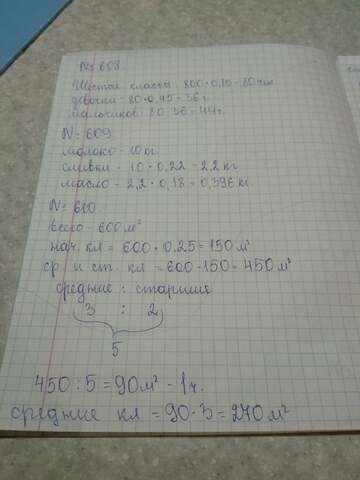 № 608
Шестые классы: 800 · 0,10 = 80 чел
девочки = 80 · 0,45 = 36 г.
мальчиков: 80 - 36 = 44 г.
№ 609
молоко - 10 кг
сливки - 10 · 0.22 = 2,2 кг
масло - 2,2 · 0,18 = 0,396 кг
№ 610
всего - 600 м²
нач. кл = 600 · 0.25 = 150 м²
ср и ст. кл = 600 - 150 = 450 м²
средние : старшие
3 : 2
5
450 : 5 = 90 м² - 1 ч.
средние кл = 90 · 3 = 270 м²